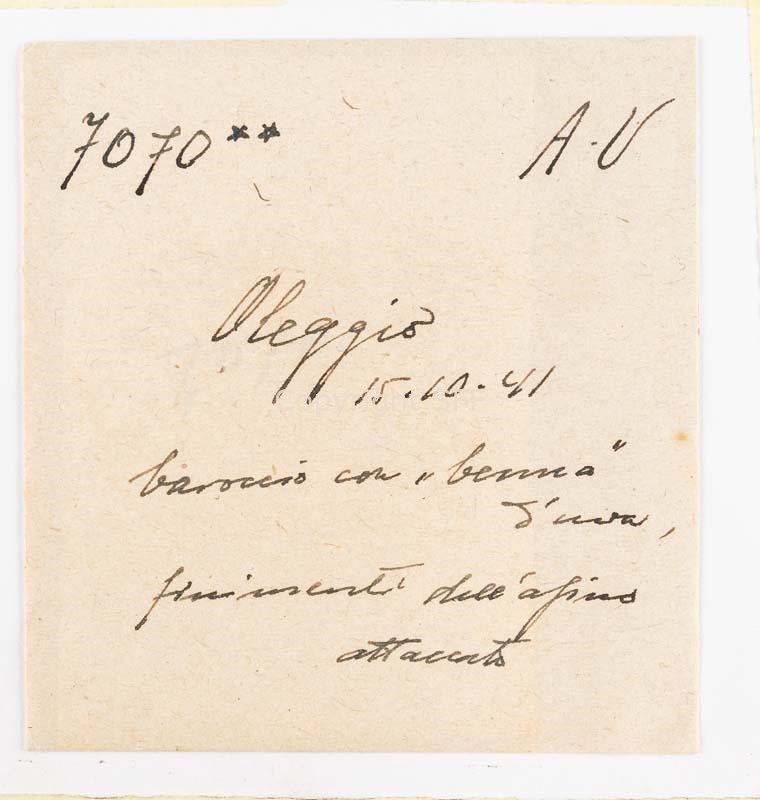 7070** A.V
Oleggio
15.10.41
baroccio con „benna"
d'uva,
finimenti dell'asino
attaccato